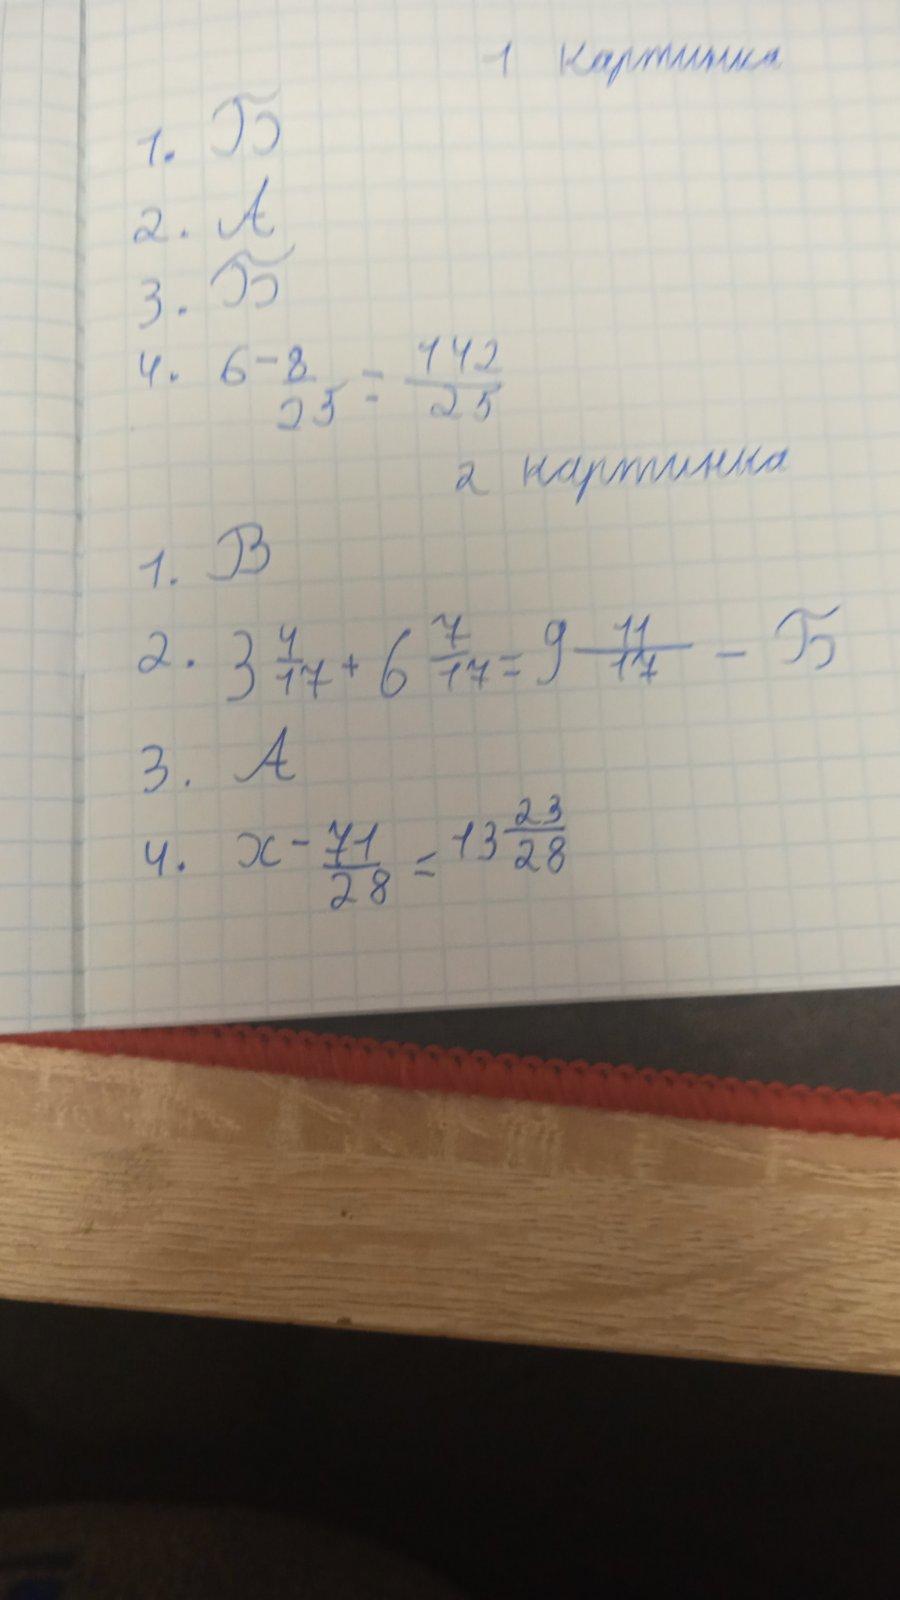 1 картинка
1. Б
2. А
3. Б
4. 6 - 8/25 = 142/25
2 картинка
1. В
2. 3 4/17 + 6 7/17 = 9 11/17 - Б
3. А
4. x - 71/28 = 13 23/28